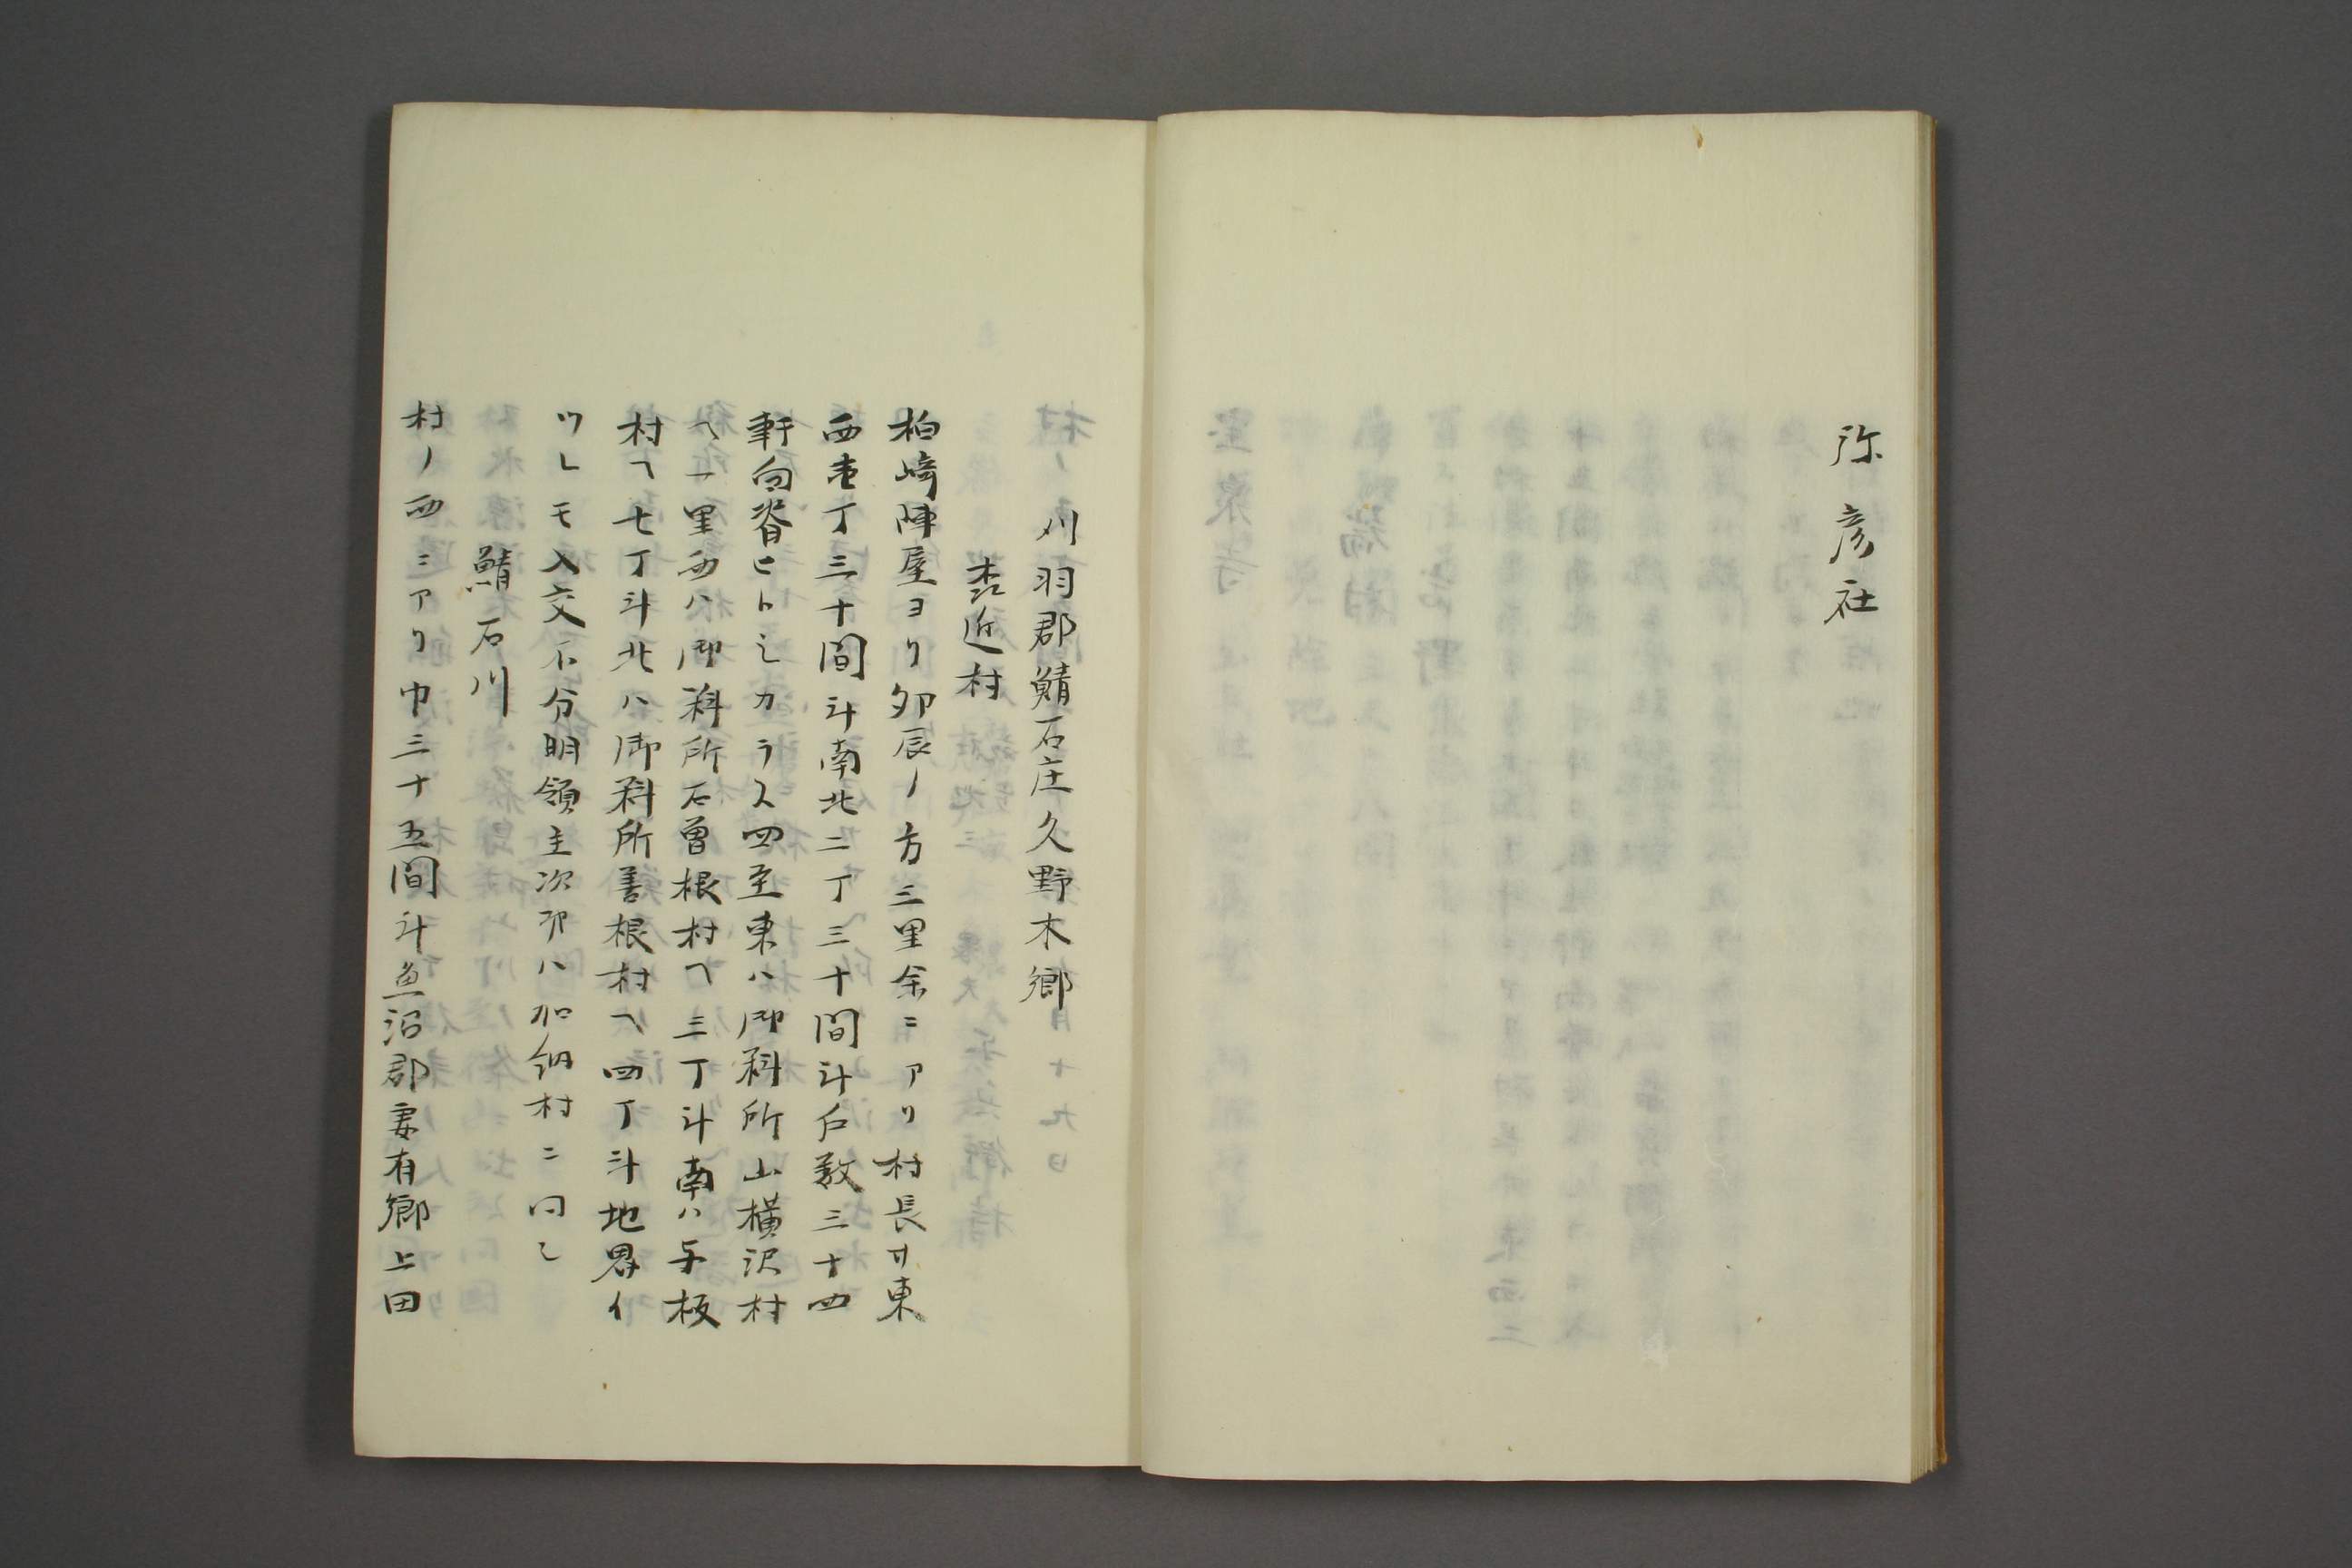 弥彦社
刈羽郡鯖石庄久野木郷
近村
柏崎陣屋ヨリ卯辰ノ方三里余ニアリ村長サ東
西壱丁三十間斗南北二丁三十間斗戸数三十四
軒向背ヒトシカラス四至東ハ御料所山横沢村
ヘ一里西ハ御料所石曽根村ヘ三丁斗南ハ与板
村ヘ七丁斗北ハ御料所善根村ヘ四丁斗地界イ
ツレモ入交不分明領主次第ハ加納村ニ同シ
鯖石川
村ノ西ニアリ巾三十五間斗魚沼郡妻有郷上田